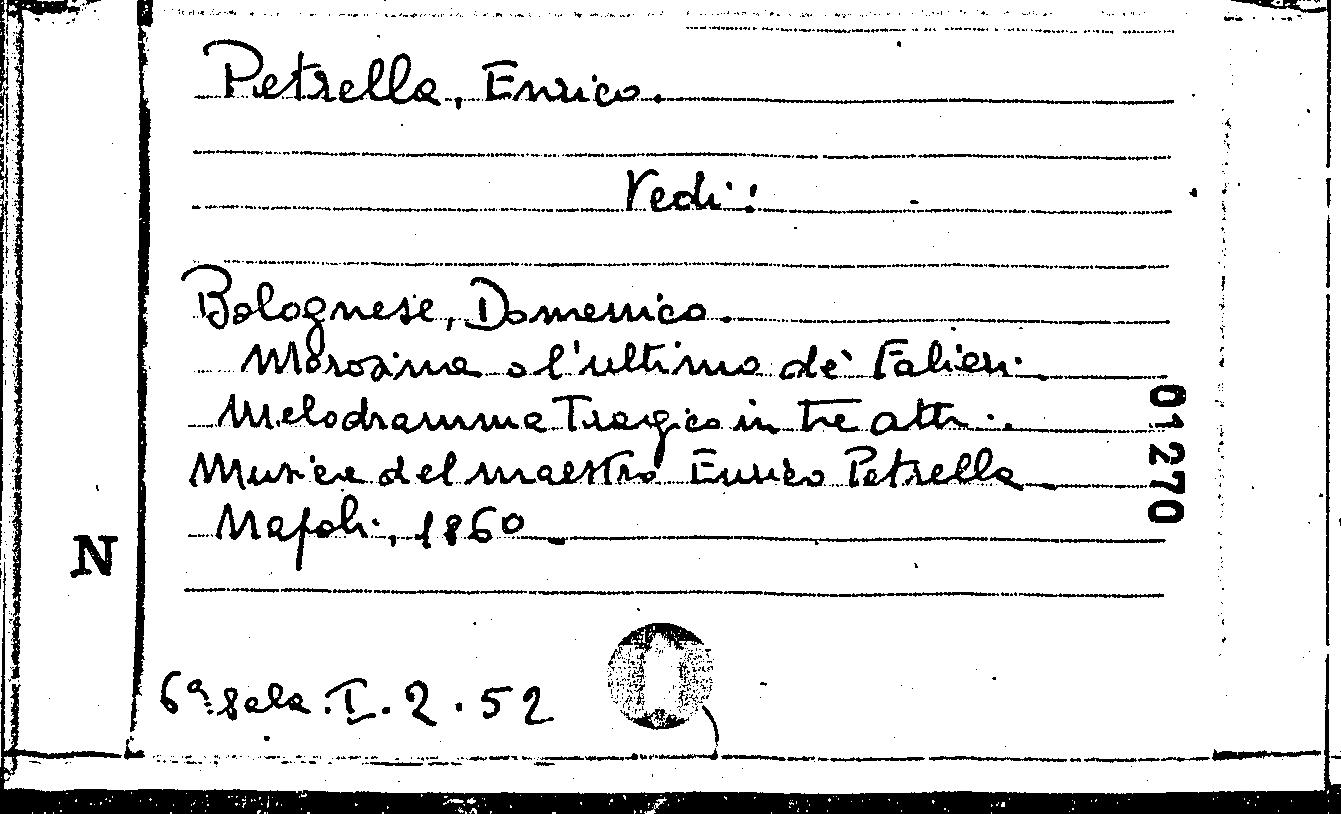 Petrella, Enrico.
Vedi:
Bolognese, Domenico.
Morosina o l'ultimo de' Falieri.
Melodramma Tragico in tre atti.
Musica del maestro Enrico Petrella
Napoli, 1860
01270
N
6ª sala. I. 2. 52